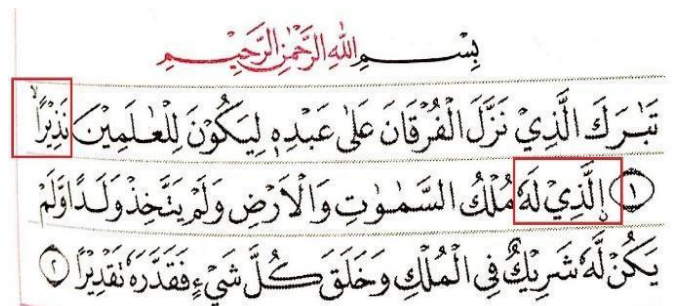 بِسْمِ اللهِ الرَّحْمٰنِ الرَّحِيْمِ
تَبٰرَكَ الَّذِيْ نَزَّلَ الْفُرْقَانَ عَلٰى عَبْدِهٖ لِيَكُوْنَ لِلْعٰلَمِيْنَ نَذِيْرًاۙ
١ اۨلَّذِيْ لَهٗ مُلْكُ السَّمٰوٰتِ وَالْاَرْضِ وَلَمْ يَتَّخِذْ وَلَدًا وَّلَمْ
يَكُنْ لَّهٗ شَرِيْكٌ فِى الْمُلْكِ وَخَلَقَ كُلَّ شَيْءٍ فَقَدَّرَهٗ تَقْدِيْرًا ٢